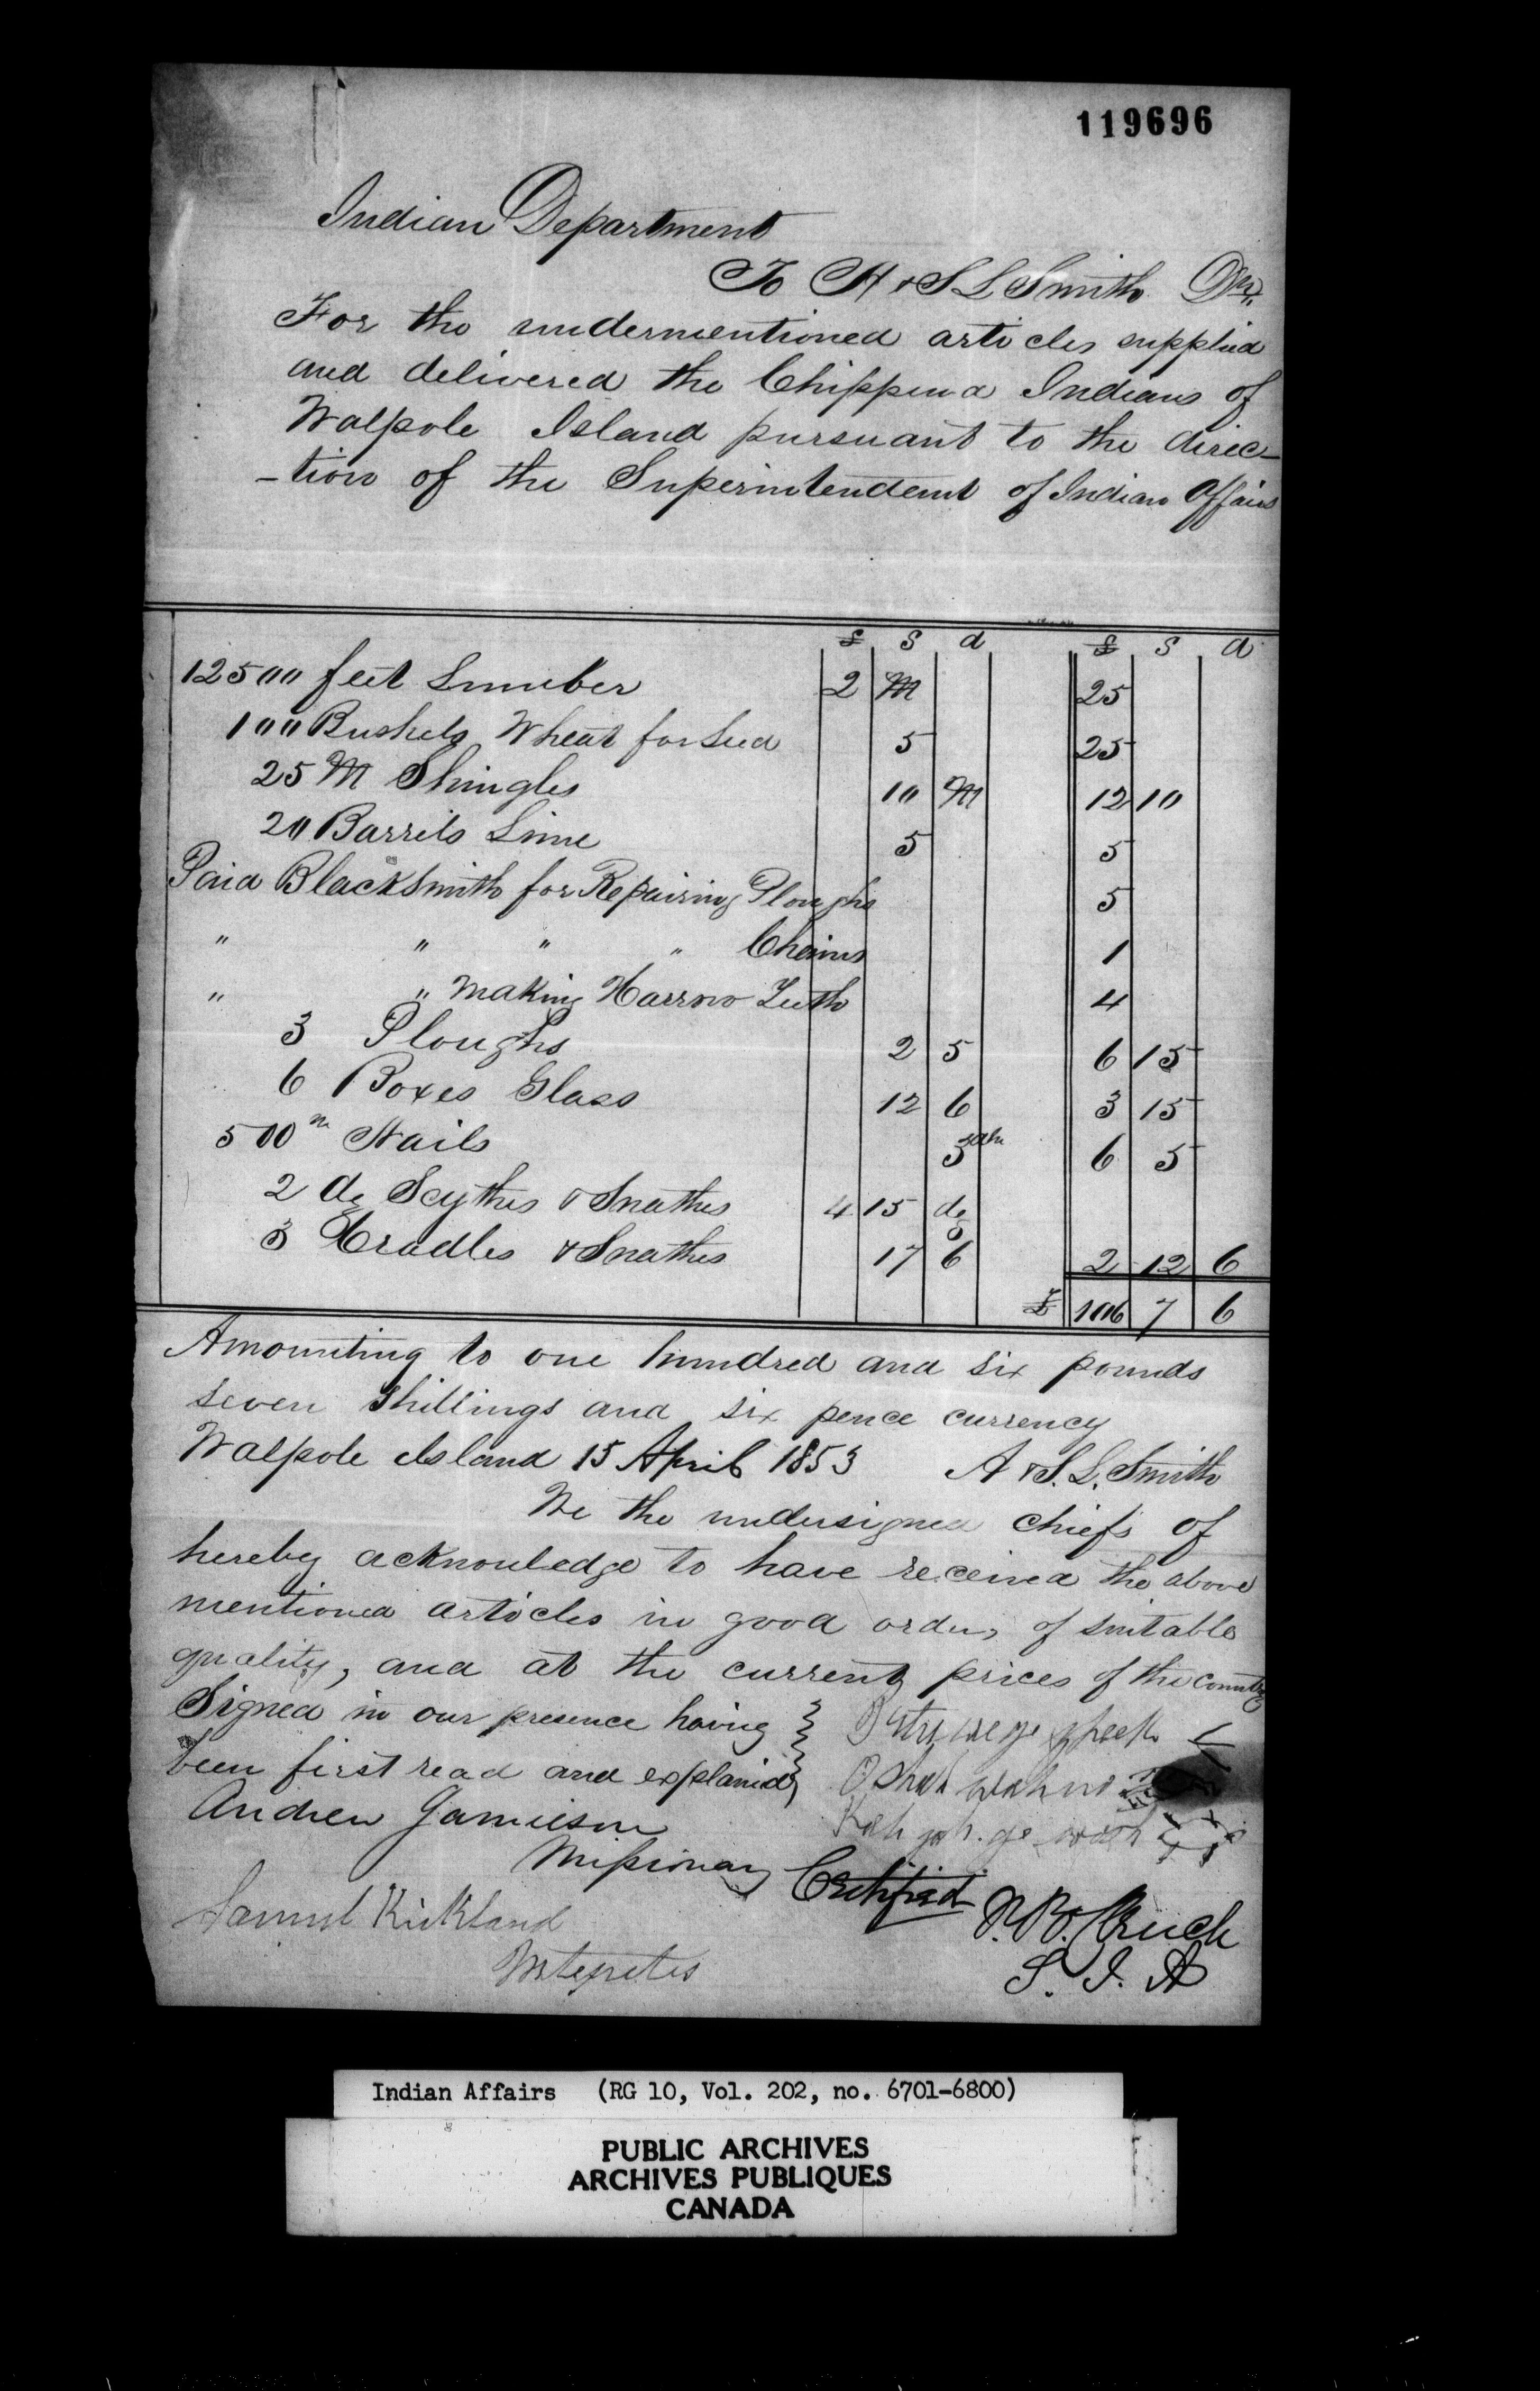 119696
Indian Department
To A & S L Smith Dr.
For the undermentioned articles supplied
and delivered the Chippewa Indians of
Walpole Island pursuant to the direc-
-tion of the Superintendent of Indian Affairs
£ S d £ S d
12500 feet Lumber 2 M 25
100 Bushels Wheat for Seed 5 25
25 M Shingles 10 M 12 10
20 Barrels Lime 5 5
Paid Blacksmith for Repairing Ploughs 5
" " " " Chains 1
" " Making Harrow Teeth 4
3 Ploughs 2 5 6 15
6 Boxes Glass 12 6 3 15
500 Nails 3 6 5
2 do Scythes & Snathes 4 15 do
3 Cradles & Snathes 17 6 2 12 6
£ 106 7 6
Amounting to one hundred and six pounds
seven shillings and six pence currency
Walpole Island 15 April 1853 A & S. L. Smith
We the undersigned chiefs of
hereby acknowledge to have received the above
mentioned articles in good order, of suitable
quality, and at the current prices of the country
Signed in our presence having
been first read and explained
Andrew Jamieson
Missionary Certified
Samuel Kirkland
Interpreter
S. I. A
Indian Affairs (RG 10, Vol. 202, no. 6701-6800)
PUBLIC ARCHIVES
ARCHIVES PUBLIQUES
CANADA